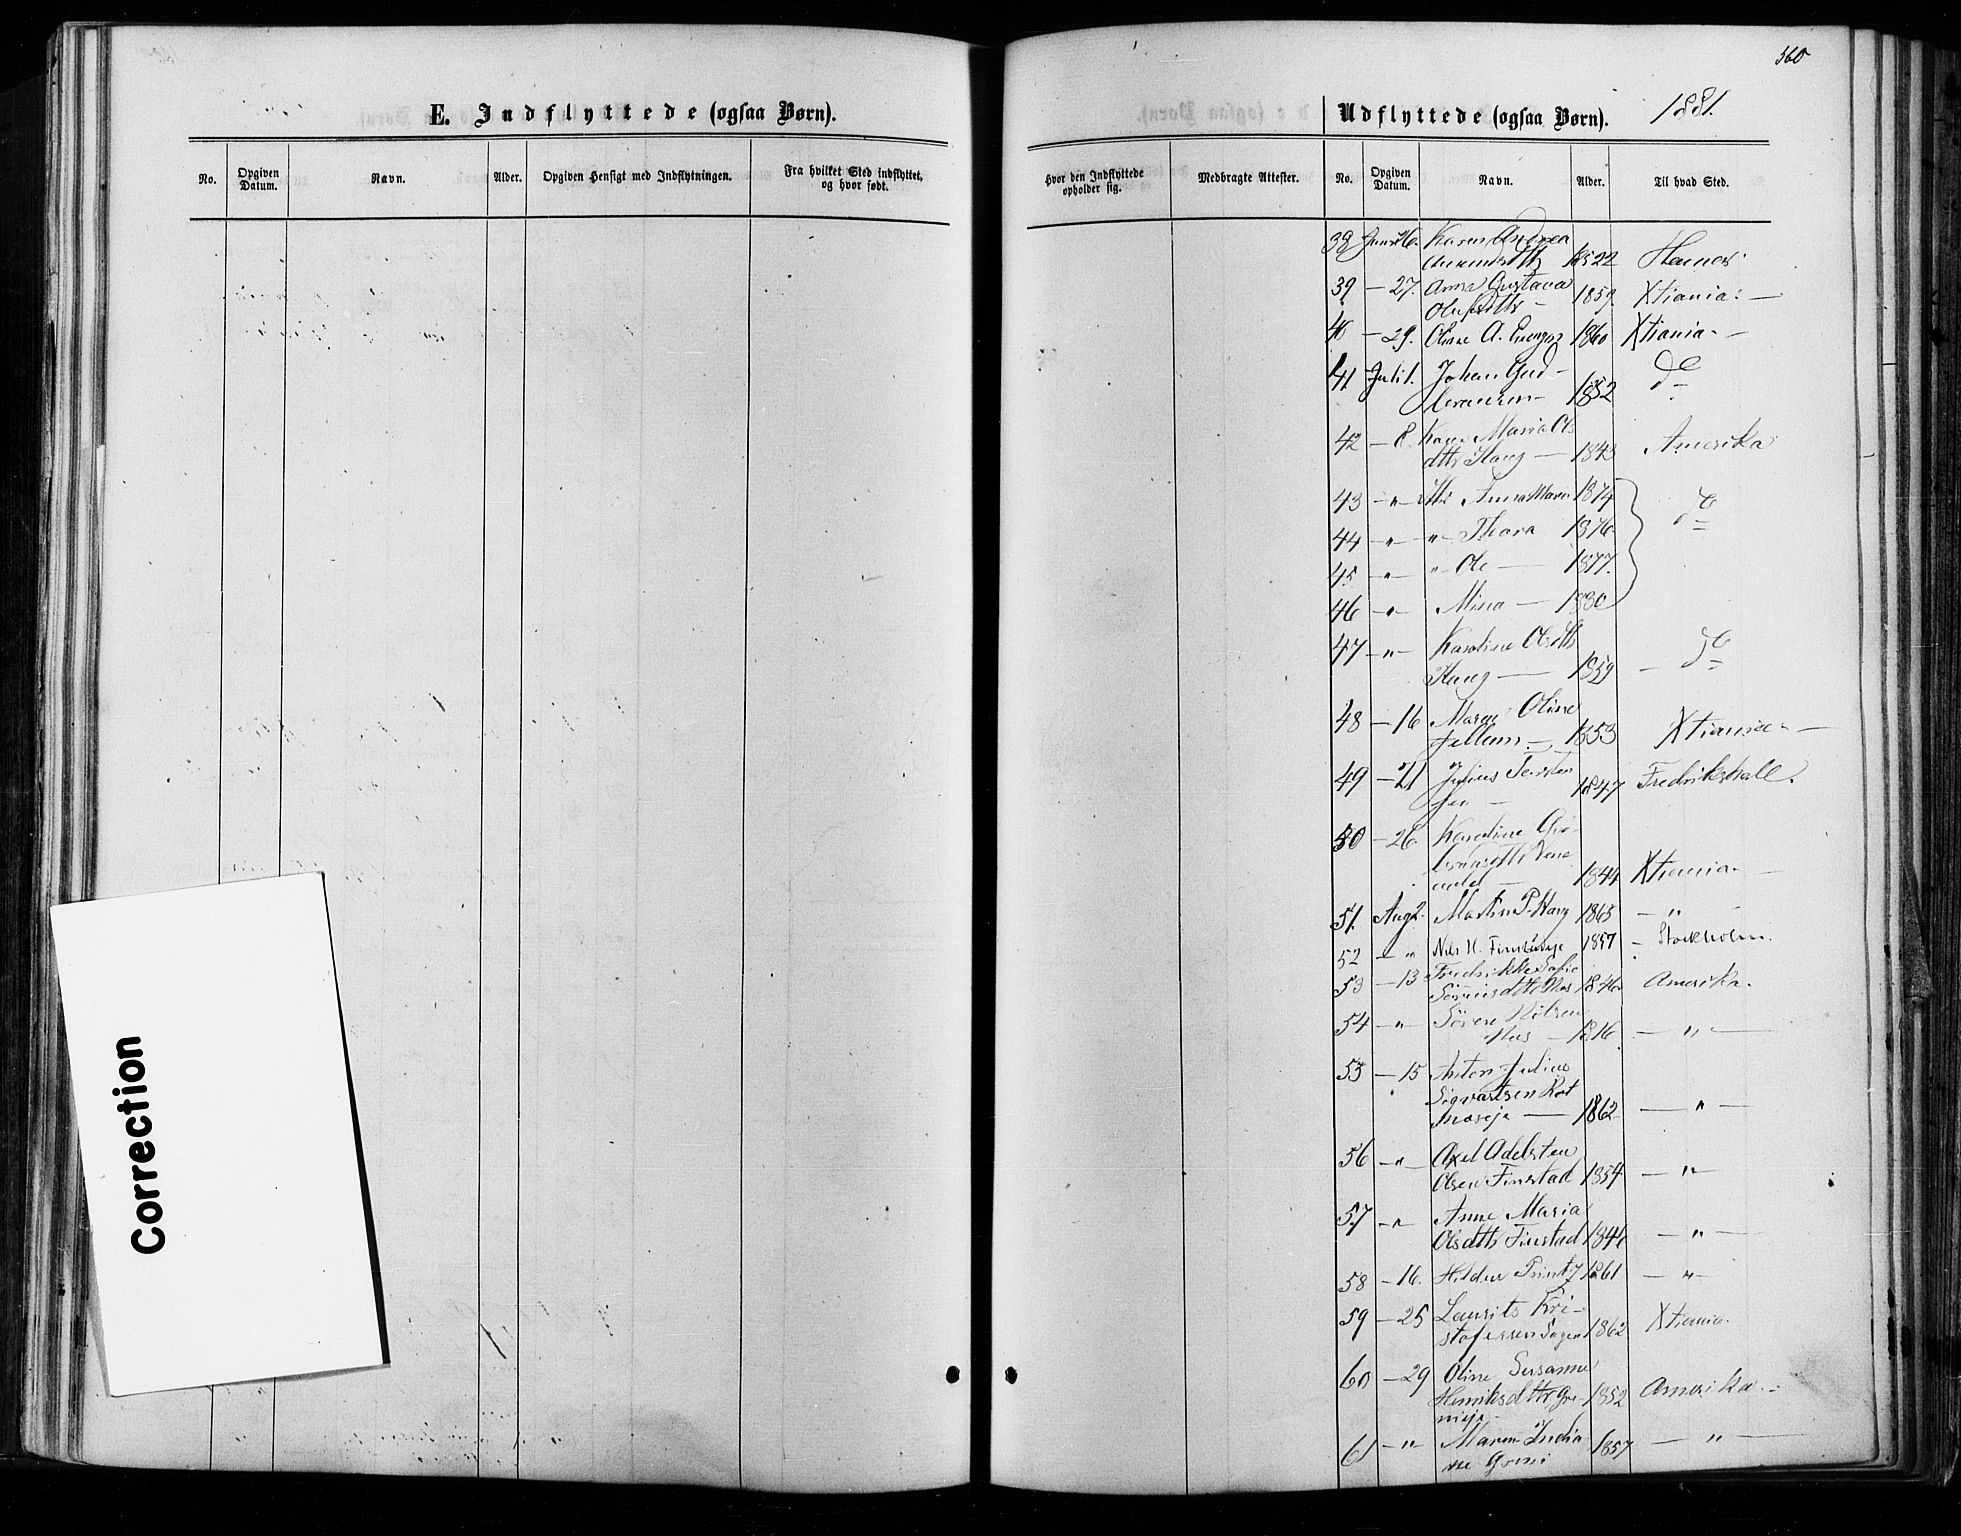 560
E. Indflyttede (ogsaa Børn).
Udflyttede (ogsaa Børn). 1881.
No. Opgiven Datum. Navn. Alder. Opgiven Hensigt med Indflytningen. Fra hvilket Sted indflyttet, og hvor født.
Hvor den Indflyttede opholder sig. Medbragte Attester. No. Opgiven Datum. Navn. Alder. Til hvad Sted.
38 Juni 26. Karen Andrea
1852 Hamar
39 — 27. Anna Gustava
1859 Xtiania. —
40 — 29. Oline A. 1860 Xtiania. —
41 Juli 1. Johan Gud-
bransen — 1852 do
42 — 8. Karen Maria Ols
dttr Haug — 1843 Amerika
43 — " — dttr Anna Marie 1874
44 — " — " Thora 1876 do
45 — " — " Ole — 1877.
46 — " — Mina — 1880
47 — " — Karoline Olsdttr
Haug — 1859 — do
48 — 16 Maren Oline
1853 Xtiania. —
49 — 21 Julius Torsten
sen — 1847 Fredrikshall.
50 — 26 Karoline
1844 Xtiania. —
51. Aug 2. Martin P. Haug 1863 — " —
52 — " Nils H. 1857 — Stockholm.
53 — 13 Fredrikke Sofie
Sörensdttr Moe 1846 Amerika.
54 — " — Sören Nilsen
Moe — 1816. — " —
55 — 15 Anton Julius
Sigvartsen Rot
naseje — 1862 — " —
56 — " — Axel Adelsten
Olsen Finstad 1854 — " —
57 — " Anne Maria
Olsdttr Finstad 1846 — " —
58 — 16. Hildur Printz 1861 — " —
59 — 25 Laurits Kri-
stofersen Sagen 1862 Xtiania.
60 — 29 Oline Susanne
Henriksdttr Gre-
nieje — 1852 Amerika. —
61 — " — Maren India-
ne Greni 1857 — " —
Correction